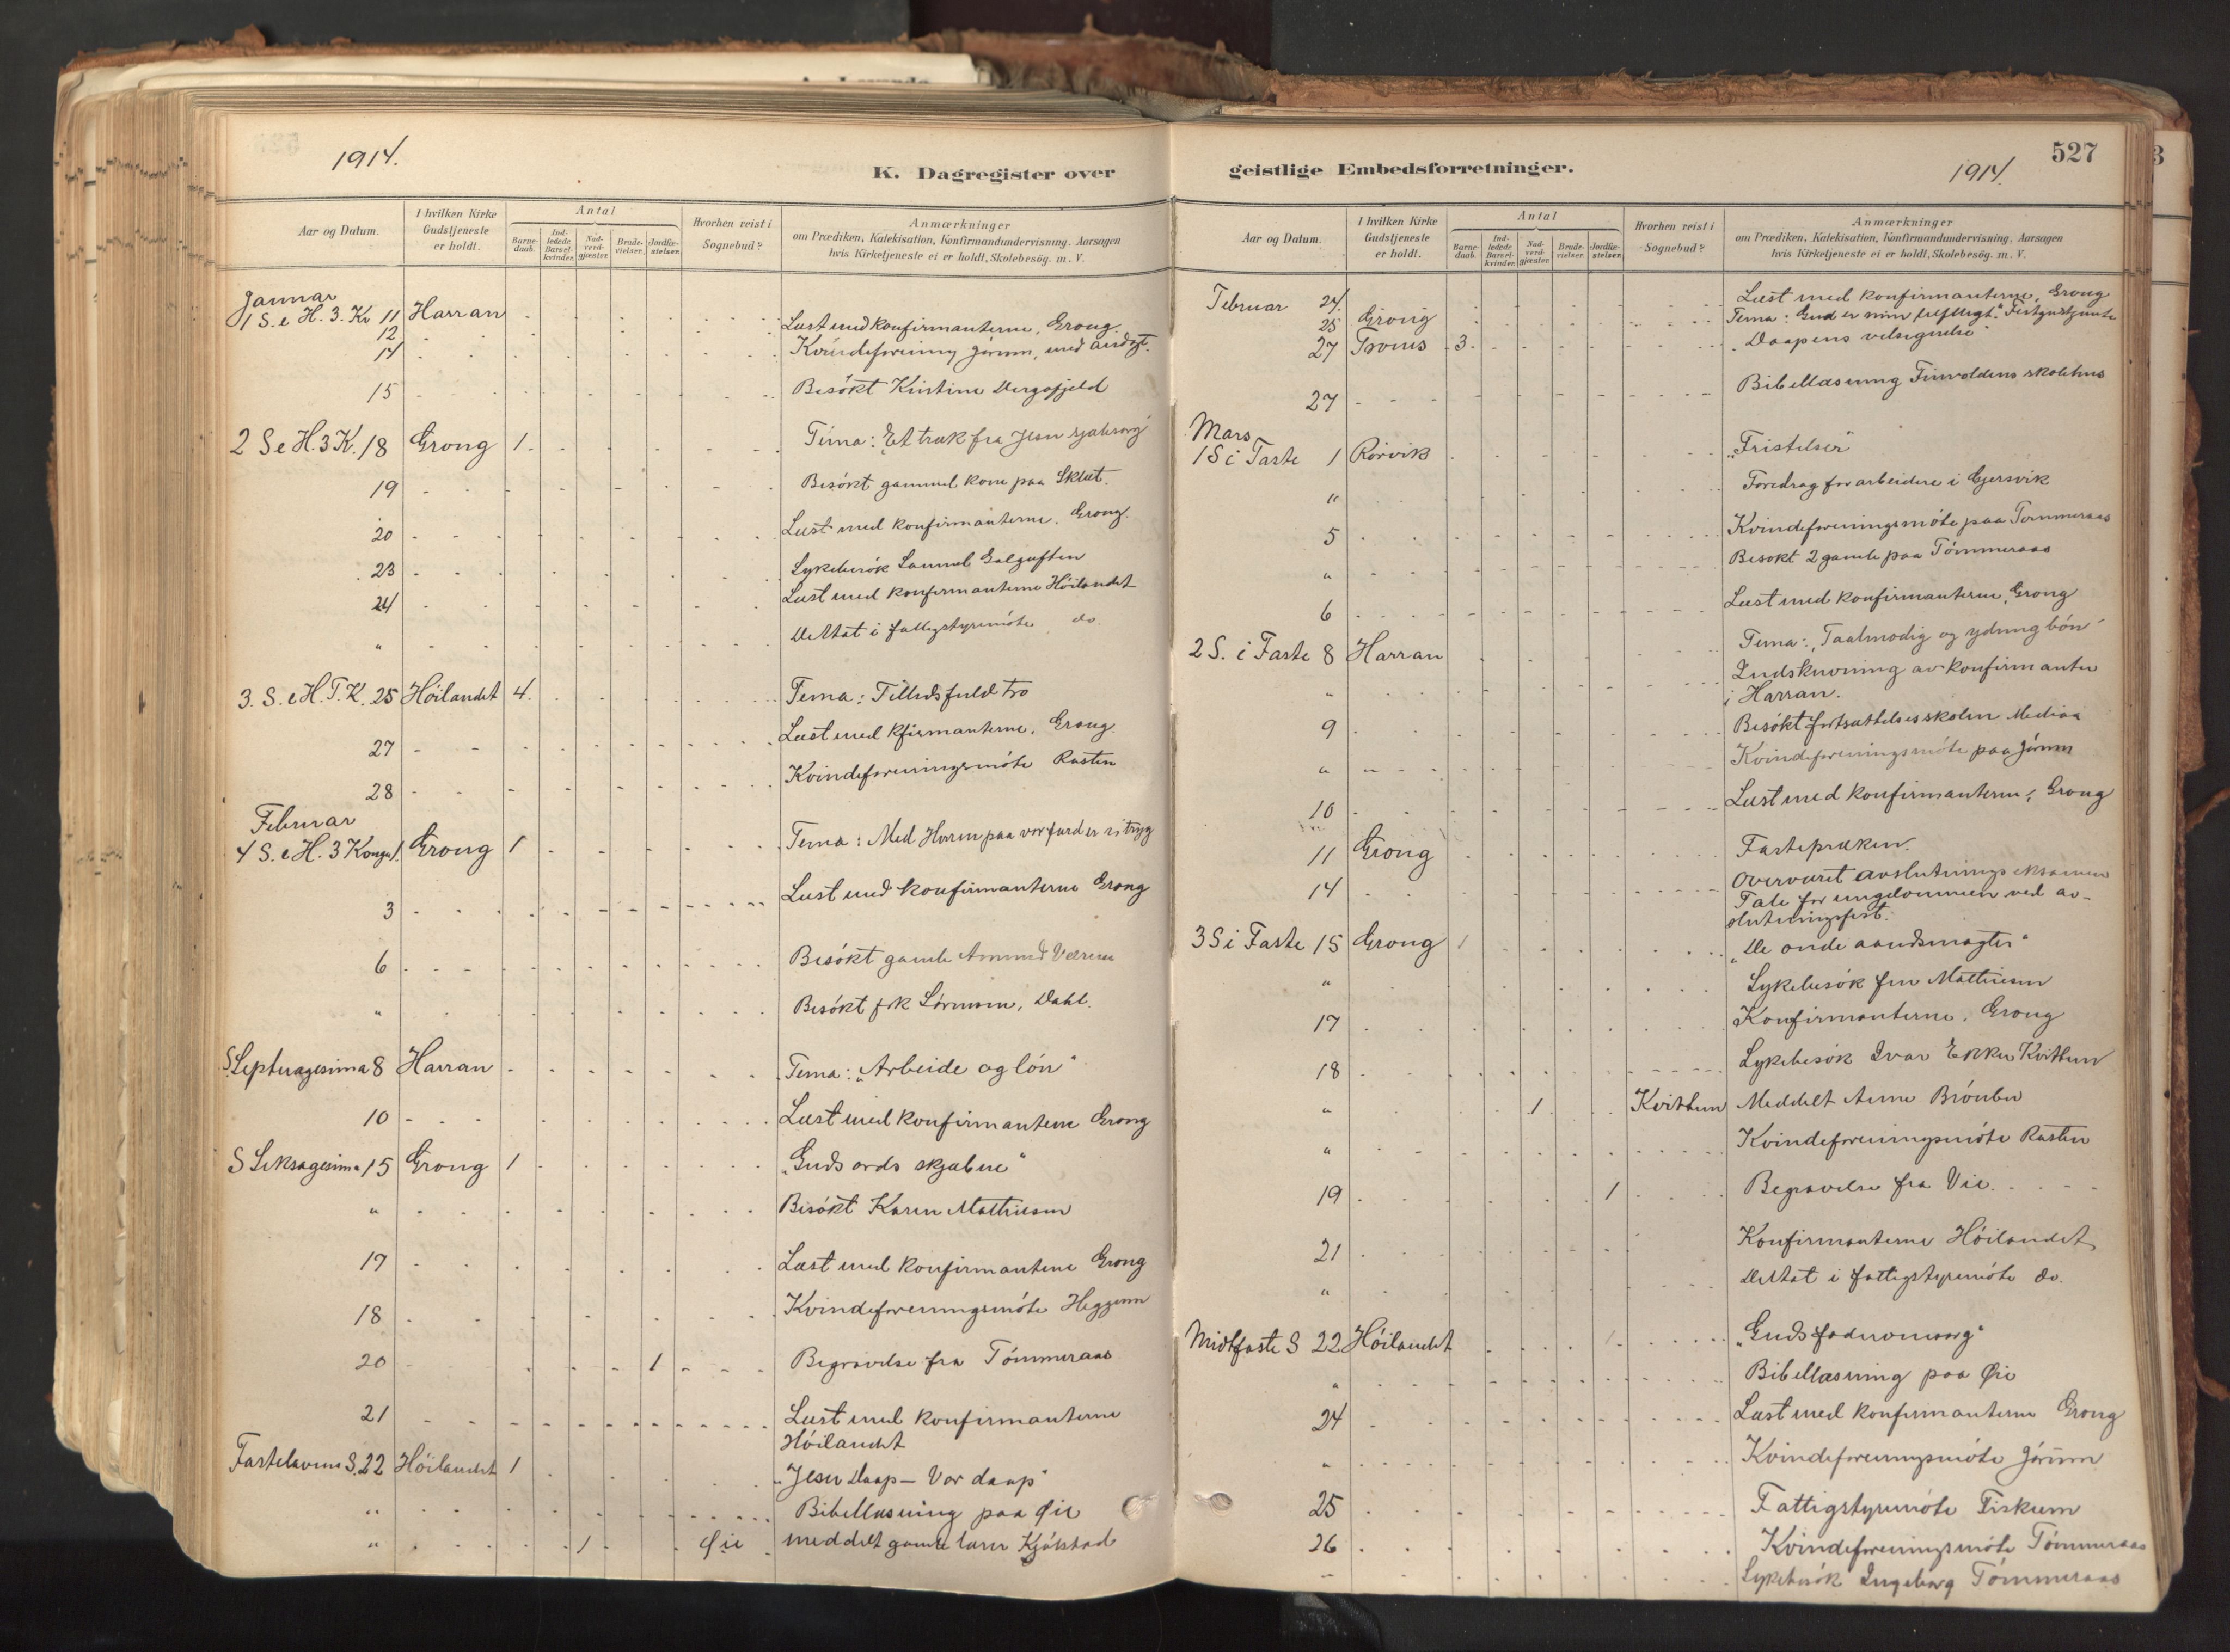 1914.
K. Dagregister over
Aar og Datum.
I hvilken Kirke Gudstjeneste er holdt.
Antal
Barne-daab.
Ind-ledede Barsel-kvinder.
Nad-verd-gjæster.
Brude-vielser.
Jordfæ-stelser.
Hvorhen reist i Sognebud?
Anmærkninger
om Prædiken, Katekisation, Konfirmandundervisning. Aarsagen
hvis Kirketjeneste ei er holdt, Skolebesøg. m. V.
Januar
1 S. e H. 3. K. 11 Harran
12 Læst med konfirmanterne, Grong.
14 Kvindeforening Jørum, med andagt.
15 Besøkt Kristine
2 S e H. 3 K. 18 Grong 1 Tema: Et træk fra Jesu sjælesorg
19 Besøkt gammel kone paa
20 Læst med konfirmanterne. Grong.
23 Sykebesøk
24 Læst med konfirmanterne Høilandet
" Deltat i fattigstyremøte do.
3. S. e H. T. K. 25 Høilandet 4. Tema: Tillidsfuld tro
27 Læst med kfirmanterne, Grong.
28 Kvindeforeningsmøte Rosten
Februar
4 S. e H. 3 Konger 1. Grong 1 Tema: Med Herren paa vor færd er vi tryg
3 Læst med konfirmanterne Grong
6 Besøkt gamle
" Besøkt frk Sørensen, Dahl.
S. Septuagesima 8 Harran Tema: "Arbeide og løn"
10 Læst med konfirmantene Grong
S Seksagesima 15 Grong 1 "Guds ords skjæbne"
" Besøkt Karen Mathiesen
17 Læst med konfirmantene Grong
18 Kvindeforeningsmøte Heggum
20 1 Begravelse fra Tømmeraas
21 Læst med konfirmanterne
Høilandet
Fastelavens S. 22 Høilandet 1 "Jesu Daap – Vor daap"
" Bibellæsning paa Øie
" 1 Øie meddelt gamle
geistlige Embedsforretninger.
1914.
527
Aar og Datum.
I hvilken Kirke Gudstjeneste er holdt.
Antal
Barne-daab.
Ind-ledede Barsel-kvinder.
Nad-verd-gjæster.
Brude-vielser.
Jordfæ-stelser.
Hvorhen reist i Sognebud?
Anmærkninger
om Prædiken, Katekisation, Konfirmandundervisning. Aarsagen
hvis Kirketjeneste ei er holdt, Skolebesøg. m. V.
Februar 24. Læst med konfirmanterne, Grong
25 Grong Tema: Gud er min
27 Trones 3. "Daapens velsignelse"
27 Bibellæsning skolehus
Mars
1 S i Faste 1 Rørvik "Fristelser"
" Foredrag for arbeidere i Gjersvik
5 Kvindeforeningsmøte paa Tømmeraas
" Besøkt 2 gamle paa Tømmeraas
6 Læst med konfirmanterne, Grong
2 S. i Faste 8 Harran Tema: "Taalmodig og ydmyg bøn"
" Indskrivning av konfirmanter
i Harran.
9 Besøkt fortsættelsesskolen Mediaa
" Kvindeforeningsmøte paa Jørum
10 Læst med konfirmanterne, Grong
11 Grong Fastepræken.
14 Overværet avslutningseksamen
Tale for ungdommen ved av-
slutningsfest.
3 S i Faste 15 Grong 1 "De onde aandsmagter"
" Sykebesøk fru Mathiesen
17 Konfirmanterne. Grong
18 Sykebesøk Ivar Ekker
" 1 Meddelt
" Kvindeforeningsmøte Rosten
19 1 Begravelse fra Vie.
21 Konfirmanterne Høilandet
" Deltat i fattigstyremøte do.
Midtfaste S 22 Høilandet "Guds faderomsorg"
" Bibellæsning paa Øie
24 Læst med konfirmanterne Grong
" Kvindeforeningsmøte Jørum
25 Fattigstyremøte Fiskum
26 Kvindeforeningsmøte Tømmeraas
" Sykebesøk Ingeborg Tømmeraas